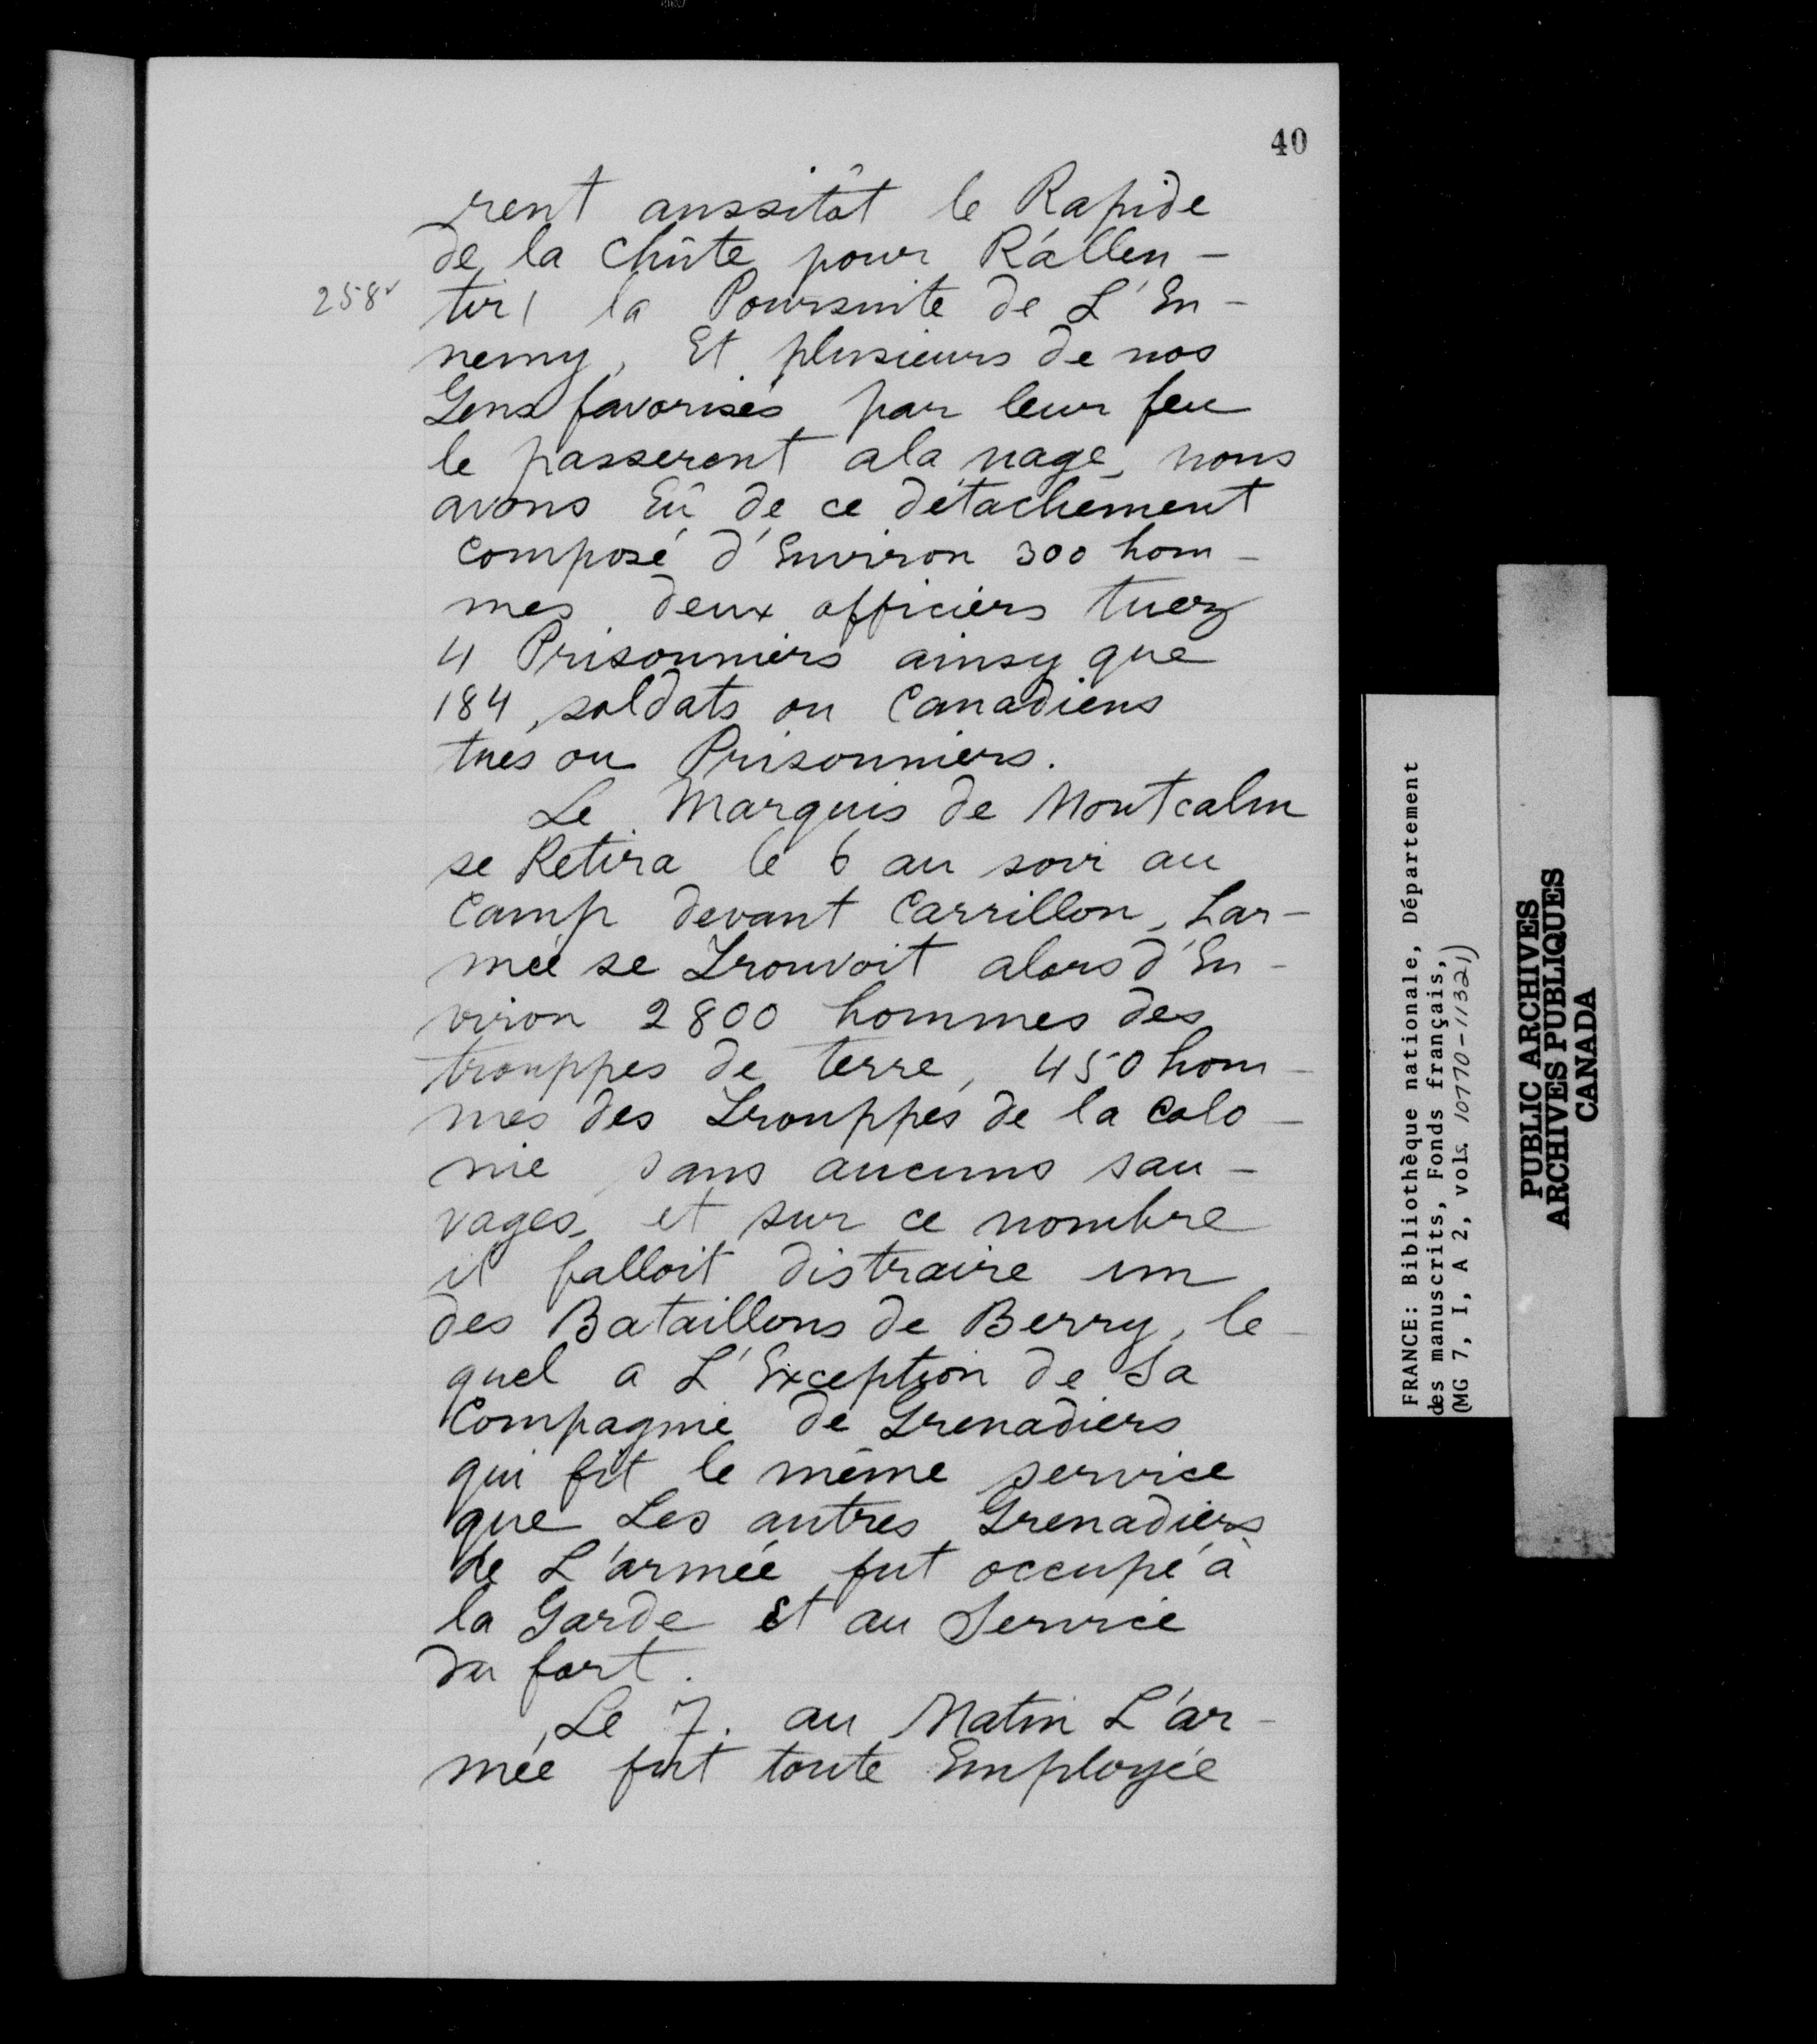 40
rent aussitôt le Rapide
de la chûte pour Rallen-
258v
tir | la Poursuite de L'En-
nemy, Et plusieurs de nos
Gens favorisés par leur feu
le passerent ala nage, nous
avons Eû de ce détachement
composé d'Environ 300 hom-
mes deux officiers tuez
4 Prisonniers ainsy que
184 soldats ou Canadiens
tués ou Prisonniers.
Le Marquis de Montcalm
se Retira le 6 au soir au
Camp devant Carrillon, Lar-
mée se Trouvoit alors d'En-
viron 2800 hommes des
trouppes de terre, 450 hom-
mes des Trouppes de la Colo-
nie sans aucuns sau-
vages, et sur ce nombre
il falloit distraire un
des Bataillons de Berry, le-
quel a L'Exception de Sa
Compagnie de Grenadiers
qui fit le même service
que Les autres Grenadiers
de L'armée fut occupé à
la Garde Et au Service
du fort.
Le 7. au Matin L'ar-
mée fut toute Employée
FRANCE: Bibliothèque nationale, Département
des manuscrits, Fonds français,
(MG 7, I, A 2, vols. 10770-11321)
PUBLIC ARCHIVES
ARCHIVES PUBLIQUES
CANADA